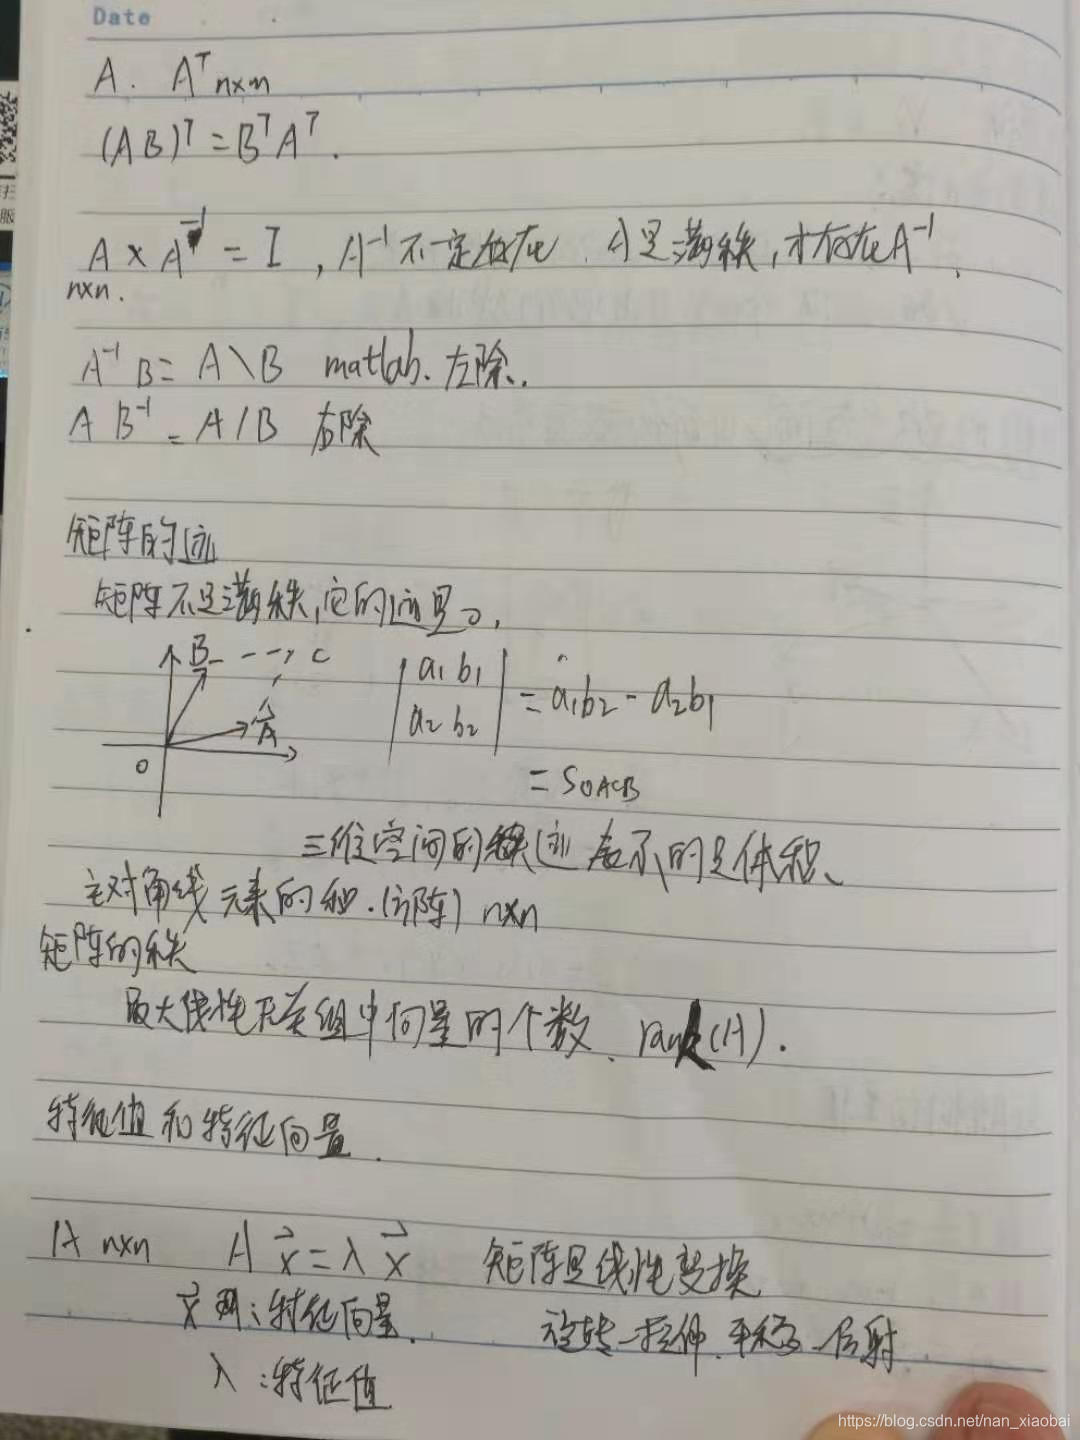 Date
A. Aᵀ n×n
(AB)ᵀ = BᵀAᵀ.
A × A⁻¹ = I , A⁻¹ 不一定存在. A是满秩, 才存在A⁻¹.
n×n.
A⁻¹ B = A \ B matlab. 左除.
A B⁻¹ = A / B 右除
矩阵的迹
矩阵不是满秩, 它的迹是0,
B C
A
O
| a₁ b₁ |
| a₂ b₂ | = a₁b₂ - a₂b₁
= SOACB
三维空间的迹表示的是体积、
主对角线元素的和.(方阵) n×n
矩阵的秩
最大线性无关组中向量的个数. rank(A).
特征值和特征向量.
A n×n A x⃗ = λ x⃗ 矩阵是线性变换
x⃗ : 特征向量. 旋转-拉伸.平移-反射
λ :特征值
https://blog.csdn.net/nan_xiaobai